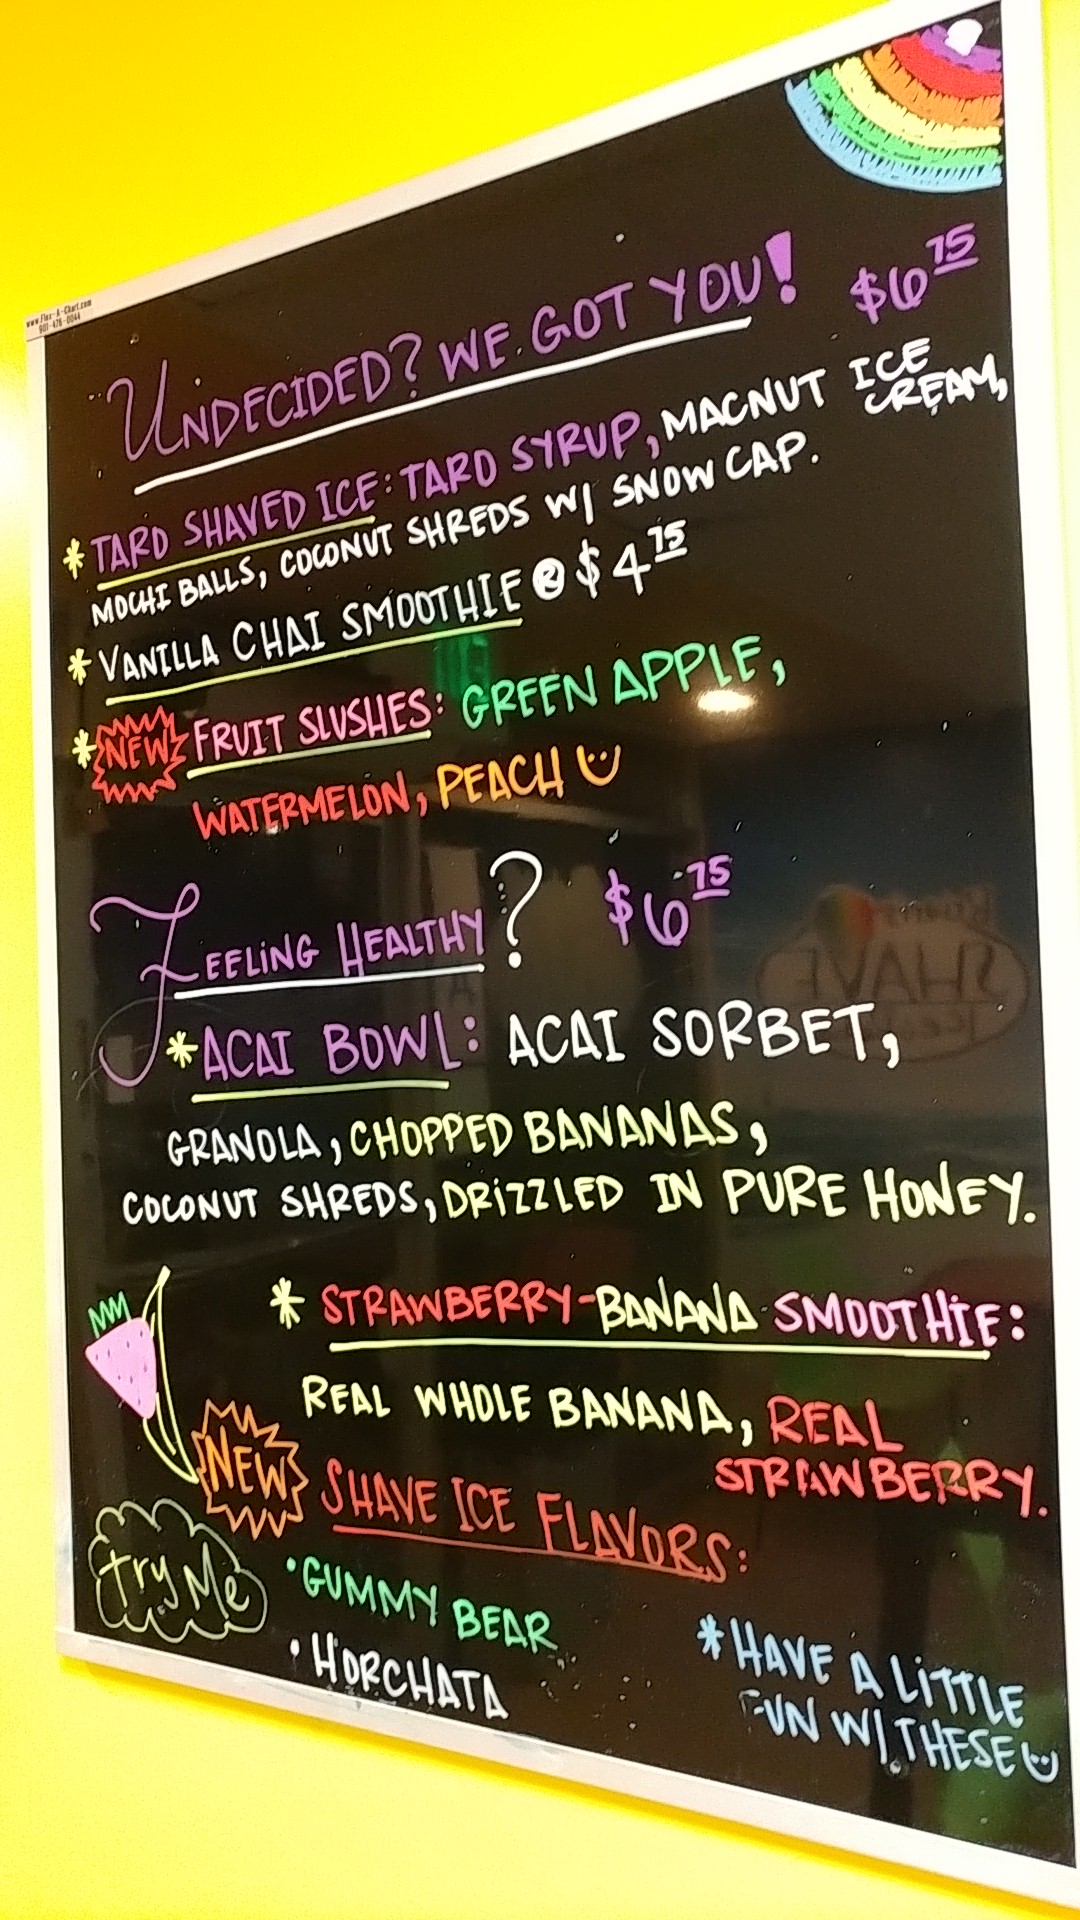 www.Flex-A-Chart.com
901-476-0044
UNDECIDED? WE GOT YOU! $6 75
* TARO SHAVED ICE: TARO SYRUP, MACNUT ICE CREAM,
MOCHI BALLS, COCONUT SHREDS W/ SNOW CAP.
* VANILLA CHAI SMOOTHIE @ $4 75
* NEW FRUIT SLUSHES: GREEN APPLE,
WATERMELON, PEACH
FEELING HEALTHY? $6 75
* ACAI BOWL: ACAI SORBET,
GRANOLA, CHOPPED BANANAS,
COCONUT SHREDS, DRIZZLED IN PURE HONEY.
* STRAWBERRY-BANANA SMOOTHIE:
REAL WHOLE BANANA, REAL
STRAWBERRY.
NEW SHAVE ICE FLAVORS:
Try Me
• GUMMY BEAR
• HORCHATA
* HAVE A LITTLE
FUN W/ THESE
SHAVE